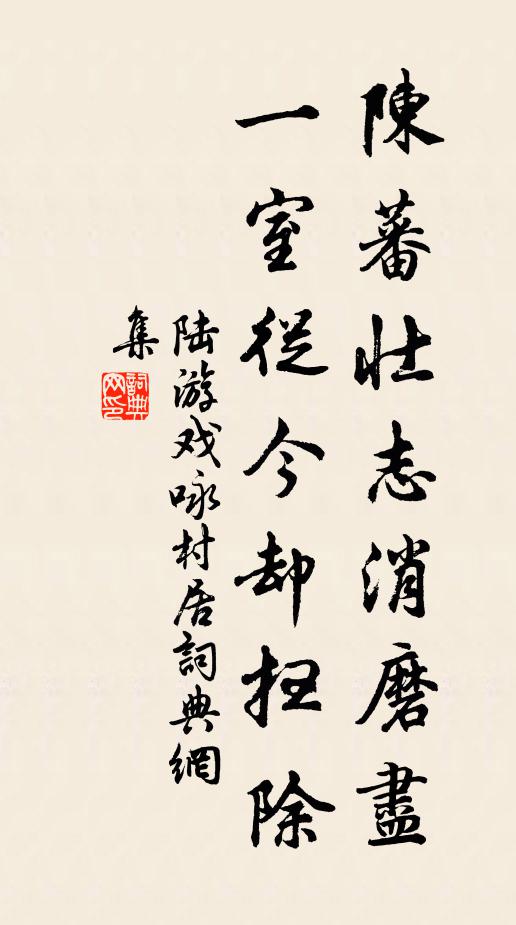 陳蕃壯志消磨盡
一室從今却掃除
陆游戏咏村居詞典網
集
詞典
网印